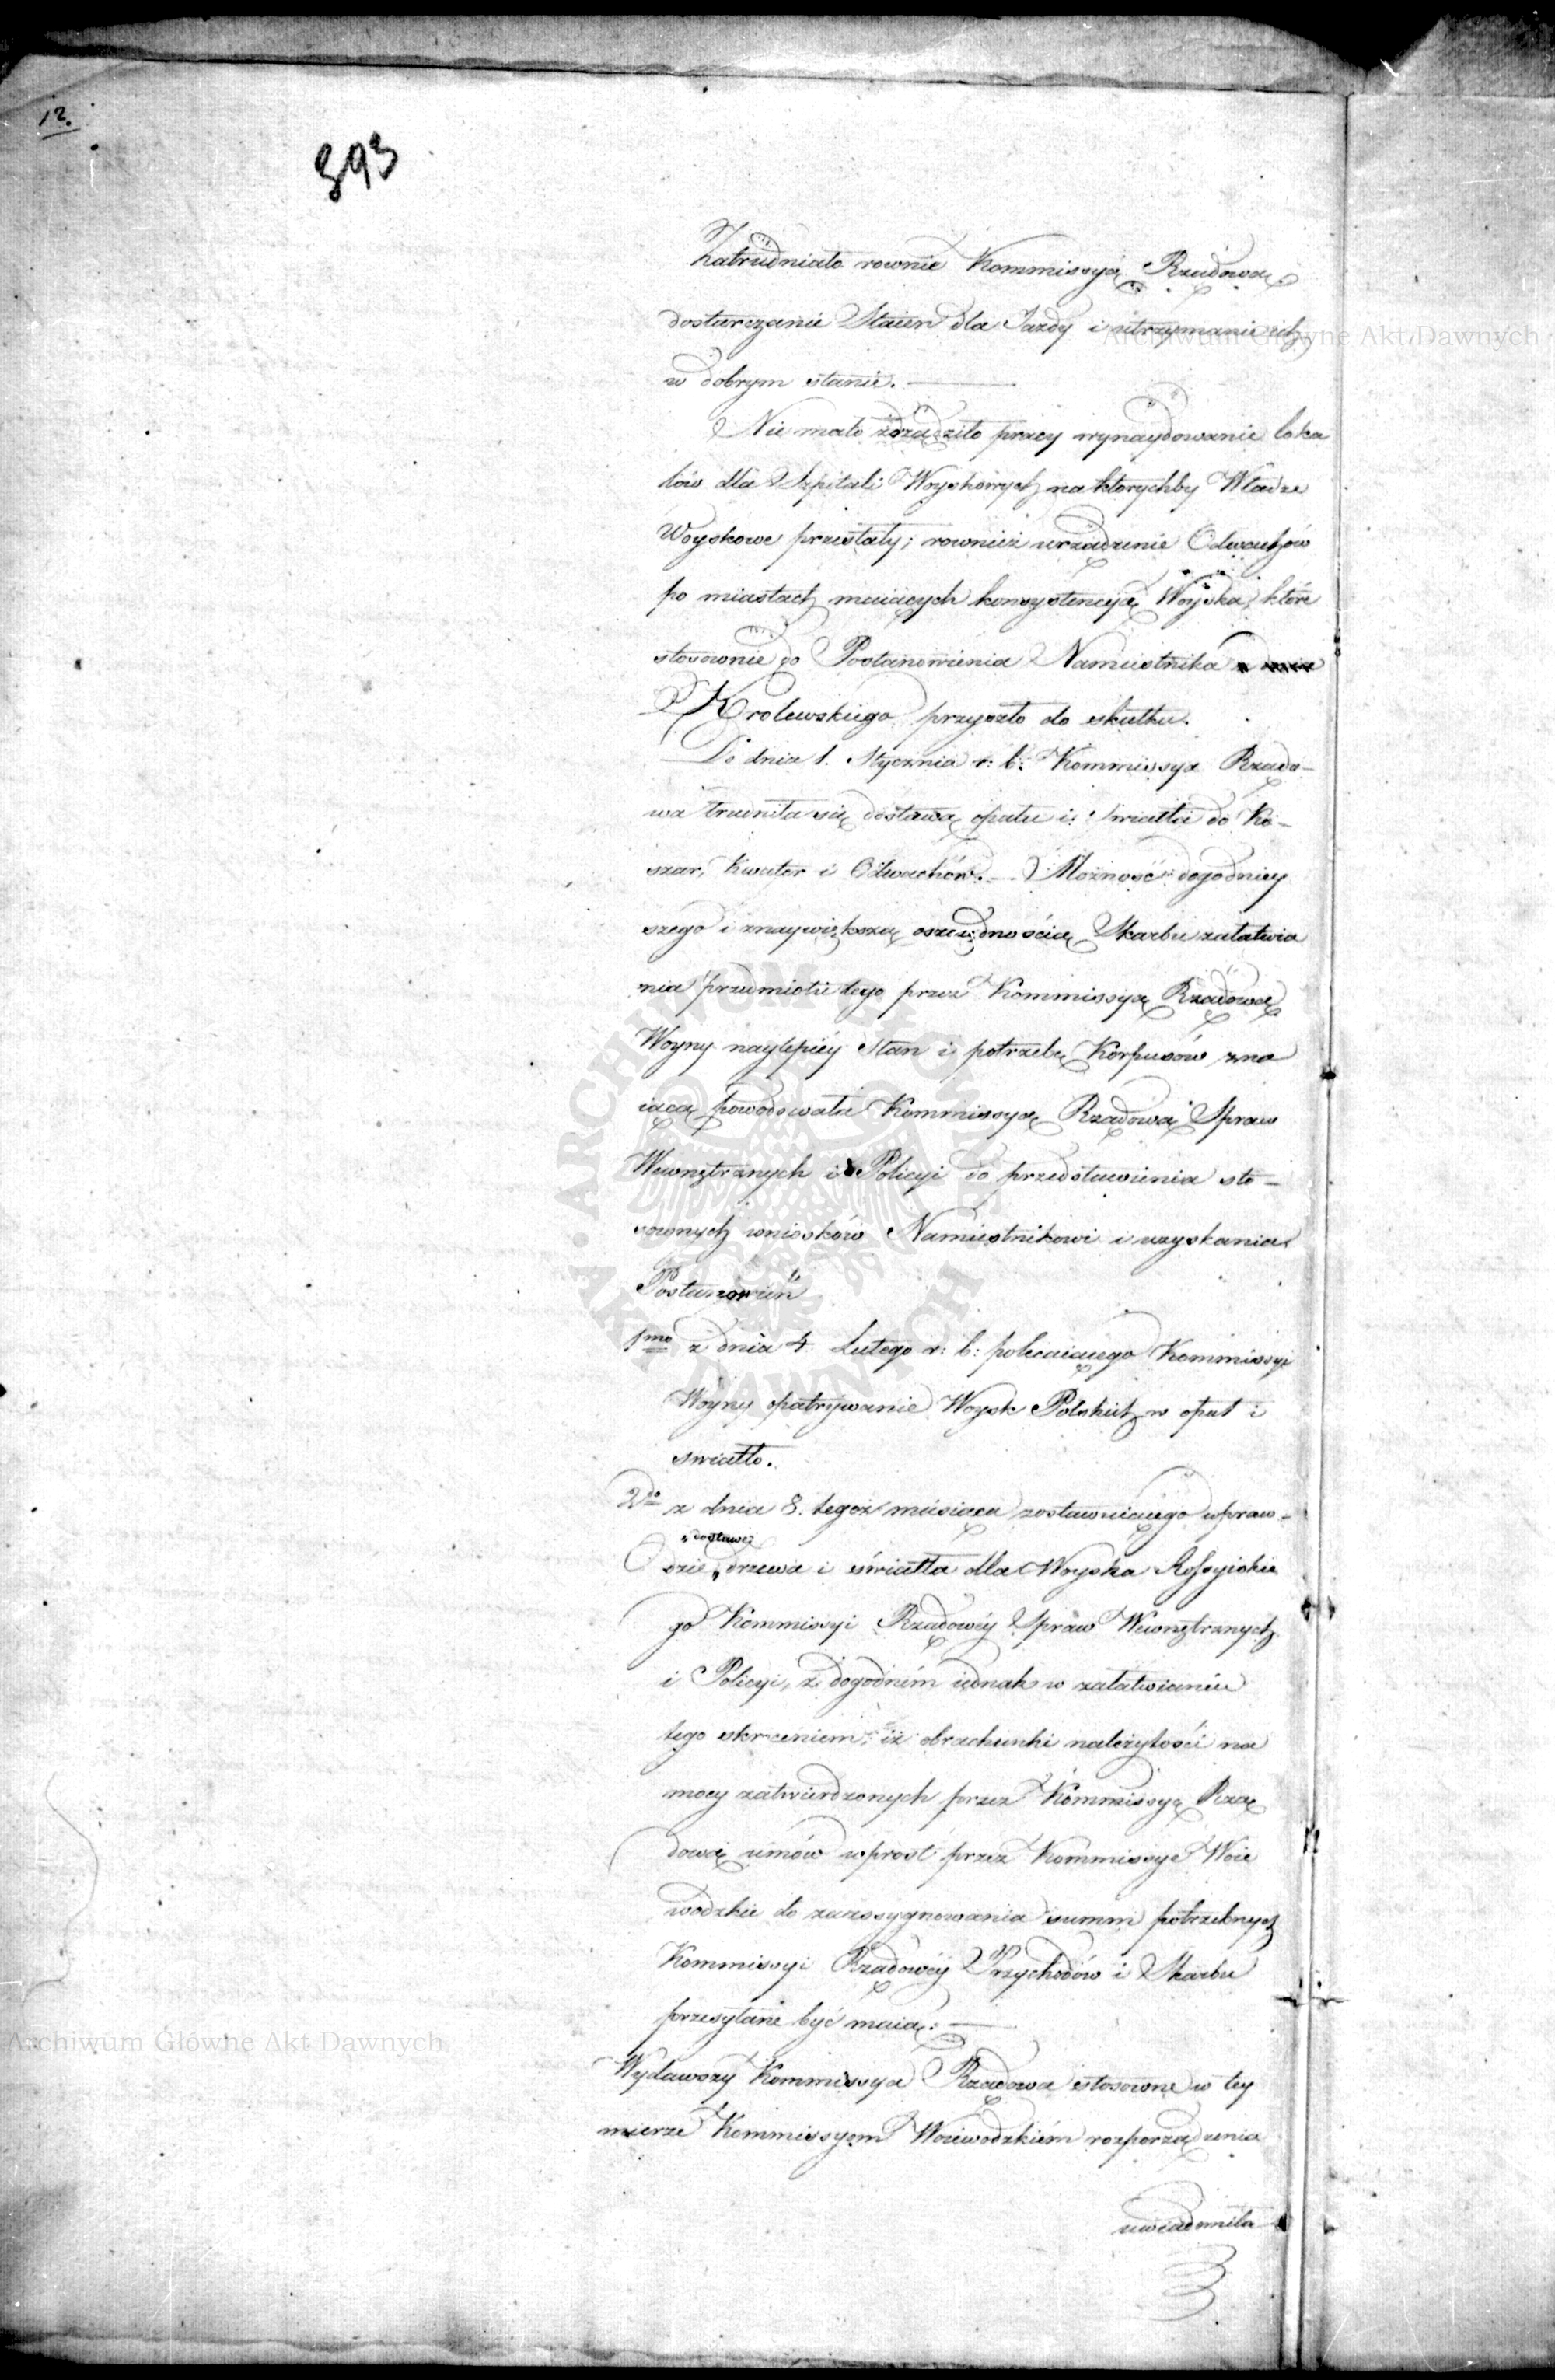 12.
393
Zatrudniało rownie Kommissyą Rządową
dostarczanie Staien dla Jazdy i utrzymanie ich
w dobrym stanie. —
Nie mało zrządziło pracy wynaydowanie loka
lów dla Szpitali Woyskowych na ktorychby Władze
Woyskowe przestały; rownież urządzenie Odwachów
po miastach maiących konsystencyą Woyska, które
stosownie do Postanowienia Namiestnika
Krolewskiego przyszło do skutku.
Do dnia 1. Stycznia r: b: Kommissya Rządo-
wa trudniła się dostawą opału i Swiatła do Ko-
szar, Kwater i Odwachów. — Możność dogodniey
szego i znaywiększą oszczędnością Skarbu załatwia
nia przedmiotu tego przez Kommissyą Rządową
Woyny naylepiéy Stan i potrzebę Korpusów zna
iącą powodowała Kommissyą Rządową Spraw
Wewnętrznych i Policyi do przedstawienia sto-
sownych wniosków Namiestnikowi i uzyskania
Postanowień
1mo z dnia 4. Lutego r: b: polecaiącego Kommissyi
Woyny opatrywanie Woysk Polskich w opał i
swiatło.
2do z dnia 8. tegoż miesiąca zostawuiącego wpraw-
dostawę
dzie drzewa i światła dla Woyska Rossyiskie
go Kommissyi Rządowéy Spraw Wewnętrznych
i Policyi, z dogodném iednak w załatwianiu
tego skróceniem, iż obrachunki należytości na
mocy zatwierdzonych przez Kommissyę Rzą
dową umów wprost przez Kommissye Woie
wodzkie do zaassygnowania summ potrzebnych
Kommissyi Rządowéy Przychodów i Skarbu
przesyłane być maią. —
Wydawszy Kommissya Rządowa stosowne w tey
mierze Kommissyom Woiewodzkiém rozporządzenia
uwiadomiła
Archiwum Główne Akt Dawnych
Archiwum Główne Akt Dawnych